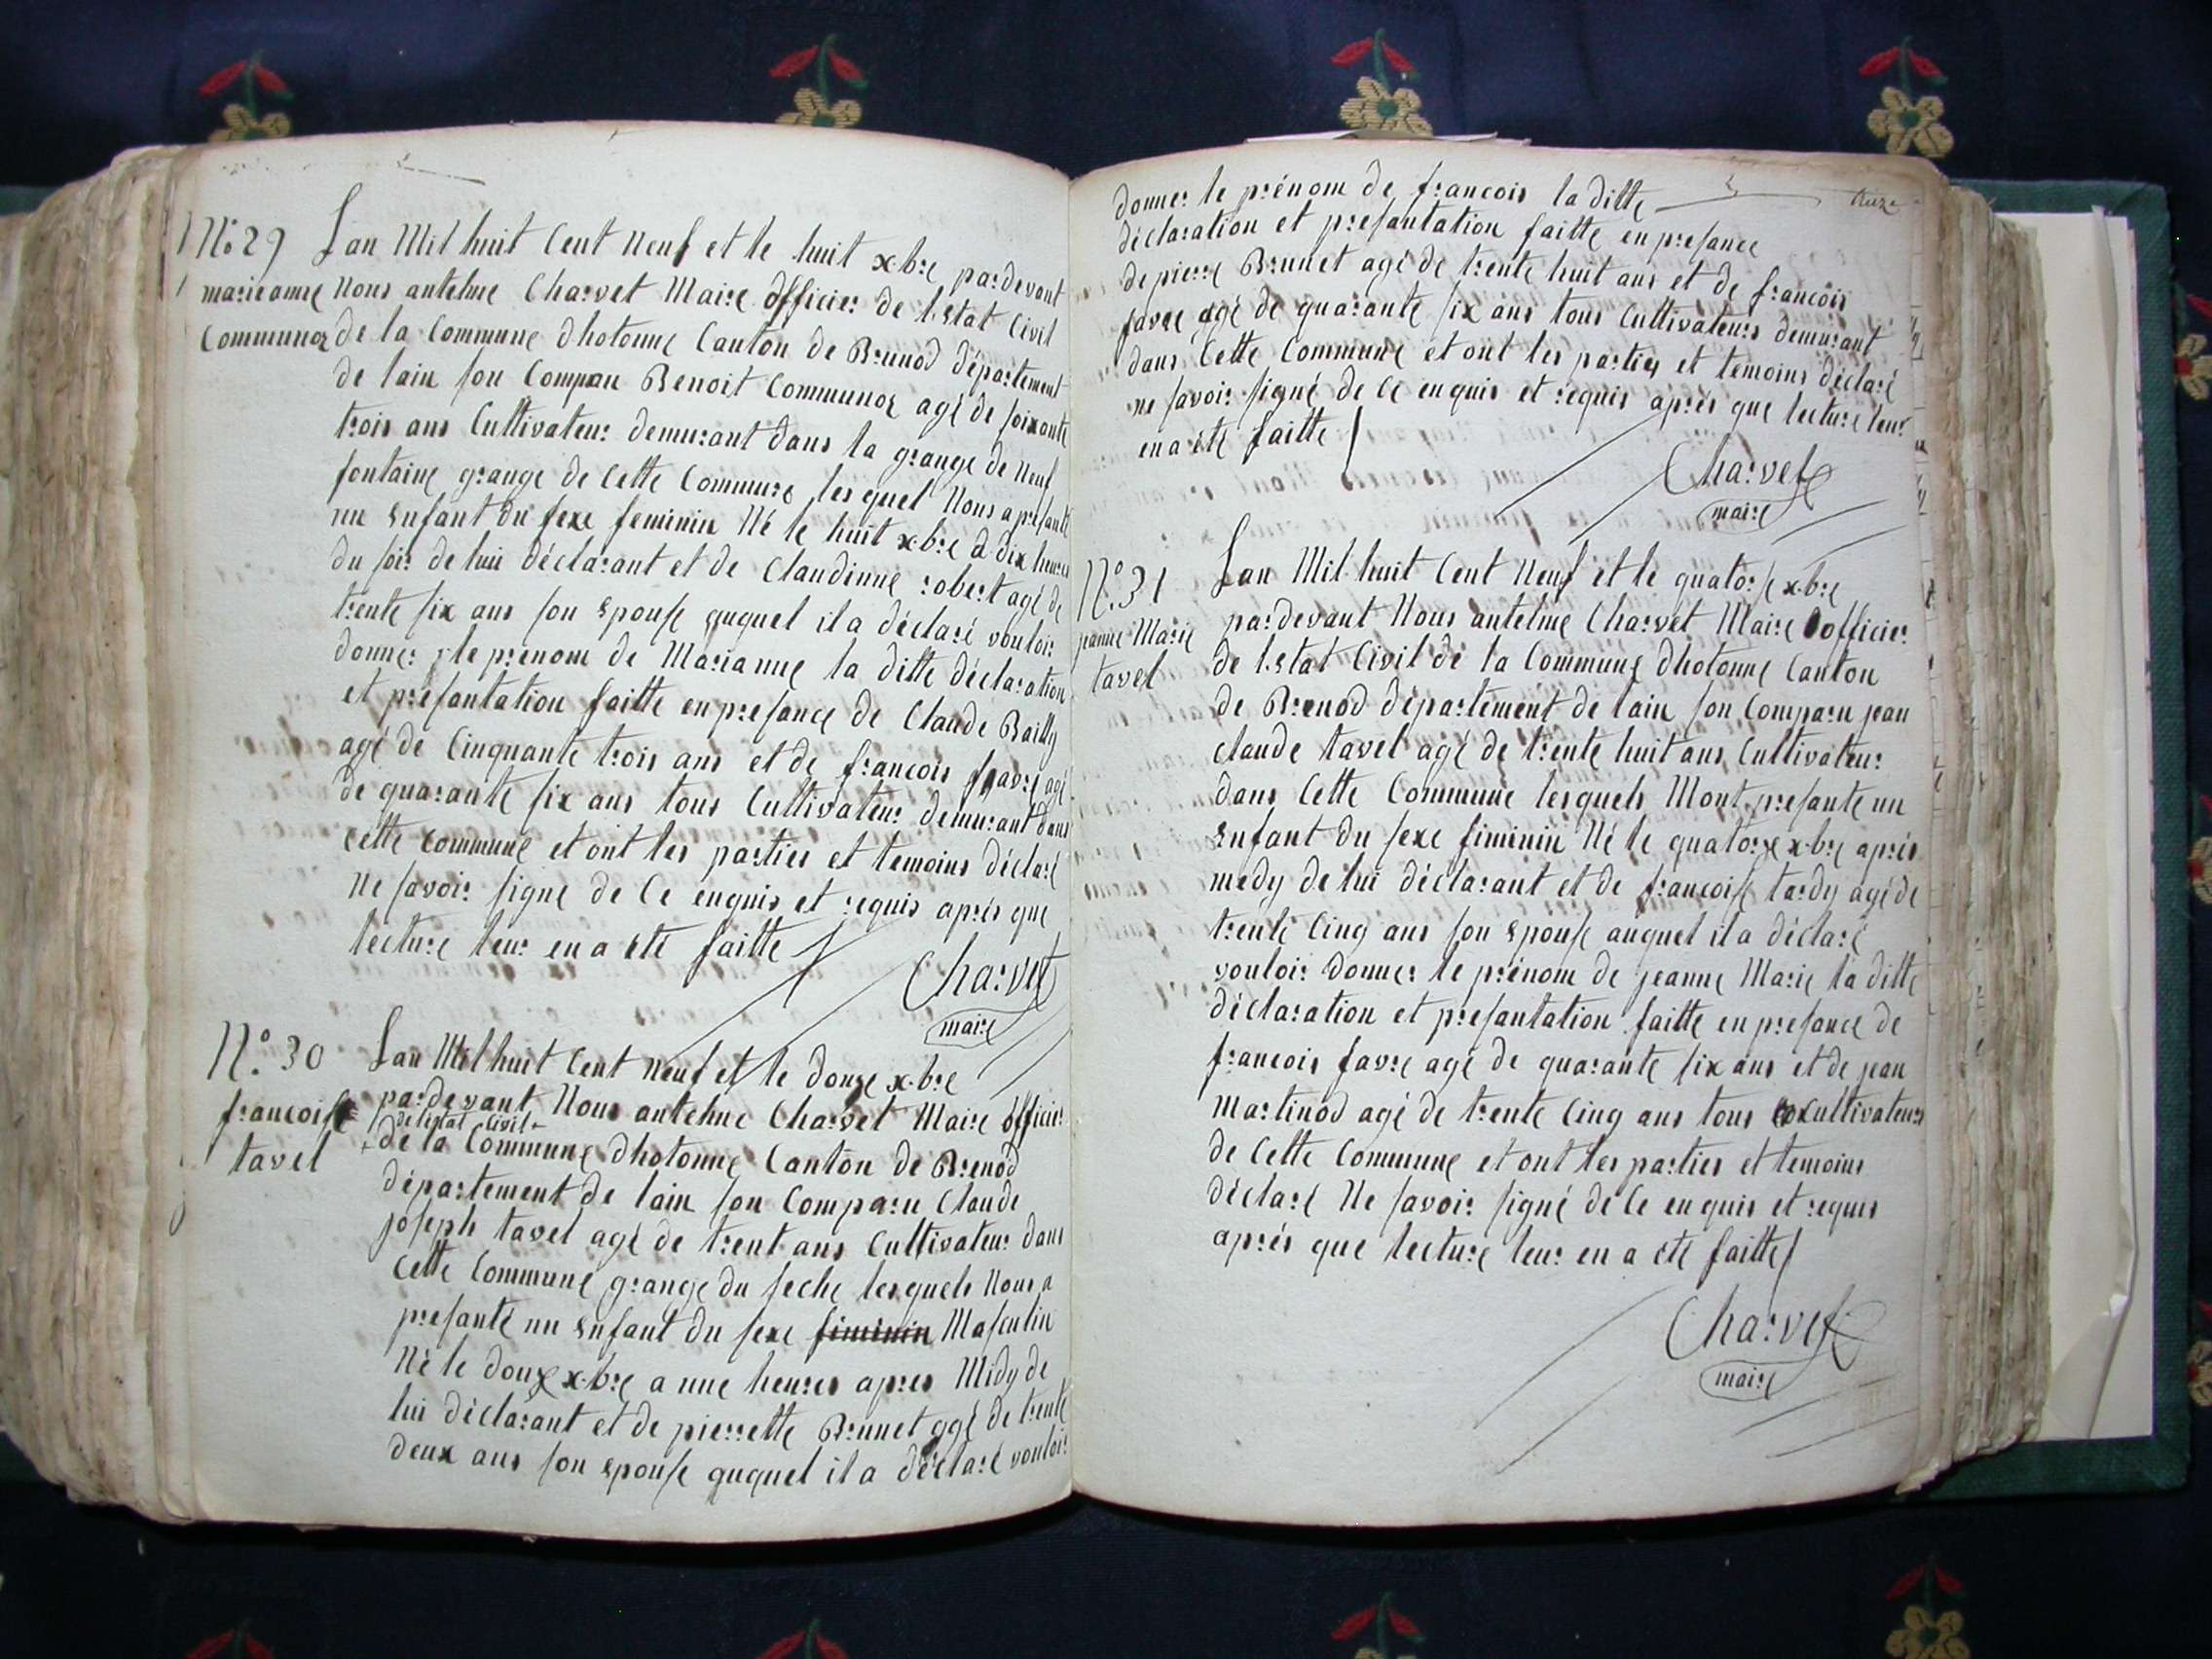 No 29
marieanne
Communoz
Lan Mil huit Cent Neuf et le huit x.bre pardevant
Nous antelme Charvet Maire officier de l.Etat Civil
de la Commune dhotonne Canton de Brunod département
de lain son Comparu Benoit Communoz agé de soixante
trois ans Cultivateur demurant dans la grange de Neuf
fontaine grange de Cette Commune les quel Nous a présanté
un Enfant du sexe feminin Né le huit x.bre a dix heures
du soir de lui déclarant et de Claudinne robert agé de
trente six ans son Epouse auquel il a déclaré vouloir
donner le prénom de Marianne la ditte déclaration
et présantation faitte en presance de Claude Bailly
agé de Cinquante trois ans et de françois favre agé
de quarante six ans tous Cultivateur demurant dans
cette commune et ont les parties et temoins déclaré
Ne savoir signe de Ce enquis et requis aprés que
lecture leur en a été faitte
Charvet
maire
N.° 30
françoise
tavel
Lan Mil huit Cent Neuf et le douze x.bre
pardevant Nous antelme Charvet Maire officier
de lestat Civil
de la Commune dhotonne Canton de Brenod
département de lain son Comparu Claude
joseph tavel agé de trent ans Cultivateur dans
Cette Commune grange du seche lesquels Nous a
presanté un Enfant du sexe fiminin Masculin
Né le douze x.bre a une heures apres Midy de
lui déclarant et de pierrette Brunet agé de trente
deux ans son Epouse auquel il a déclaré vouloir
donner le prénom de françois la ditte
déclaration et présantation faitte en presance
de pierre Brunet agé de trente huit ans et de françois
favre agé de quarante six ans tous Cultivateurs demurant
dans Cette Commune et ont les parties et temoins déclaré
ne savoir signé de Ce enquis et requis aprés que lecture leur
en a été faitte
Charvet
maire
N.° 31
jeanne Marie
tavel
Lan Mil huit Cent Neuf et le quatorse x.bre
pardevant Nous antelme Charvet Maire officier
de l.Etat Civil de la Commune dhotonne Canton
de Brenod département de lain son Comparu jean
Claude tavel agé de trente huit ans Cultivateur
dans Cette Commune lesquels Mont presante un
Enfant du sexe fiminin Né le quatorze x.bre aprés
medy de lui déclarant et de françoise tardy agé de
trente Cinq ans son Epouse auquel il a déclaré
vouloir donner le prénom de jeanne Marie la ditte
déclaration et présantation faitte en presance de
françois favre agé de quarante six ans et de jean
Martinod agé de trente Cinq ans tous Cultivateurs
de Cette Commune et ont les parties et temoins
déclaré Ne savoir signé de Ce enquis et requis
aprés que lecture leur en a été faitte
Charvet
maire